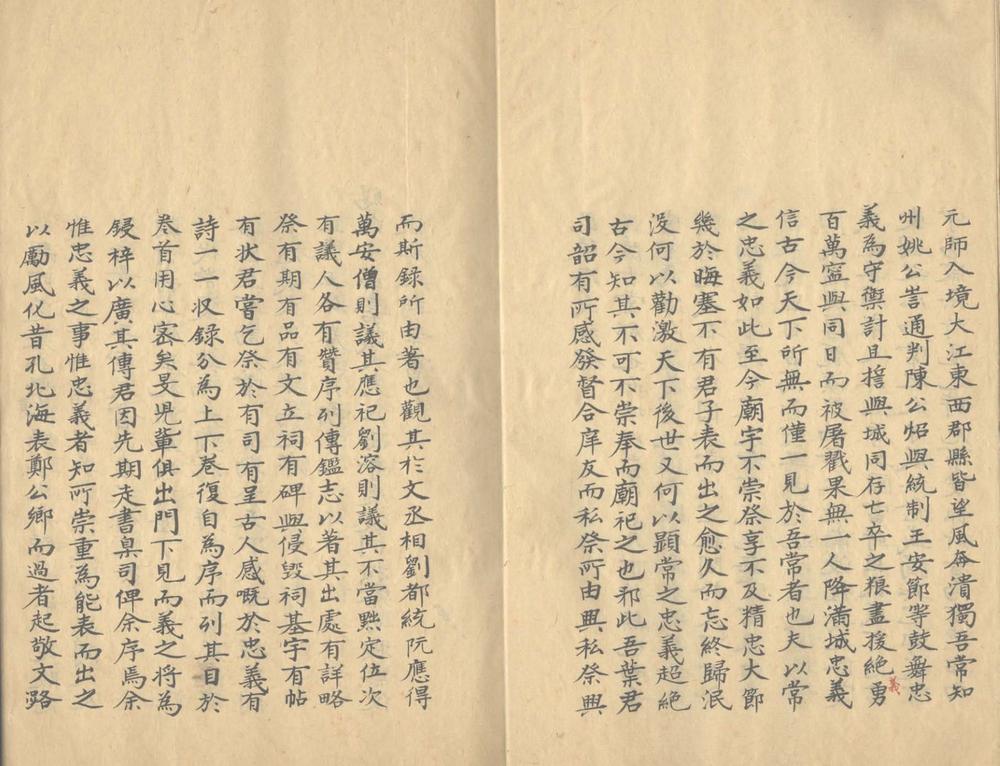 元師入境大江東西郡縣皆望風奔潰獨吾常知
州姚公訔通判陳公炤與統制王安節等鼓舞忠
義為守禦計且誓與城同存亡卒之粮盡援絶勇
義
百萬寧與同日而被屠戮果無一人降滿城忠義
信古今天下所無而僅一見於吾常者也夫以常
之忠義如此至今廟宇不崇祭享不及精忠大節
幾於晦塞不有君子表而出之愈久而忘終歸泯
没何以勸激天下後世又何以顕常之忠義超絶
古今知其不可不崇奉而廟祀之也邪此吾葉君
司韶有所感發督合庠友而私祭所由興私祭興
而斯録所由著也觀其於文丞相劉都統阮應得
萬安僧則議其應祀劉溶則議其不當黜定位次
有議人各有贊序列傳鑑志以著其出處有詳略
祭有期有品有文立祠有碑與侵毁祠基宇有帖
有状君嘗乞祭於有司有呈古人感嘅於忠義有
詩一一収録分為上下卷復自為序而列其目於
卷首用心宻矣旻児軰俱出門下見而義之将為
鋟梓以廣其傳君因先期走書臬司俾余序焉余
惟忠義之事惟忠義者知所崇重為能表而出之
以勵風化昔孔北海表鄭公鄉而過者起敬文潞